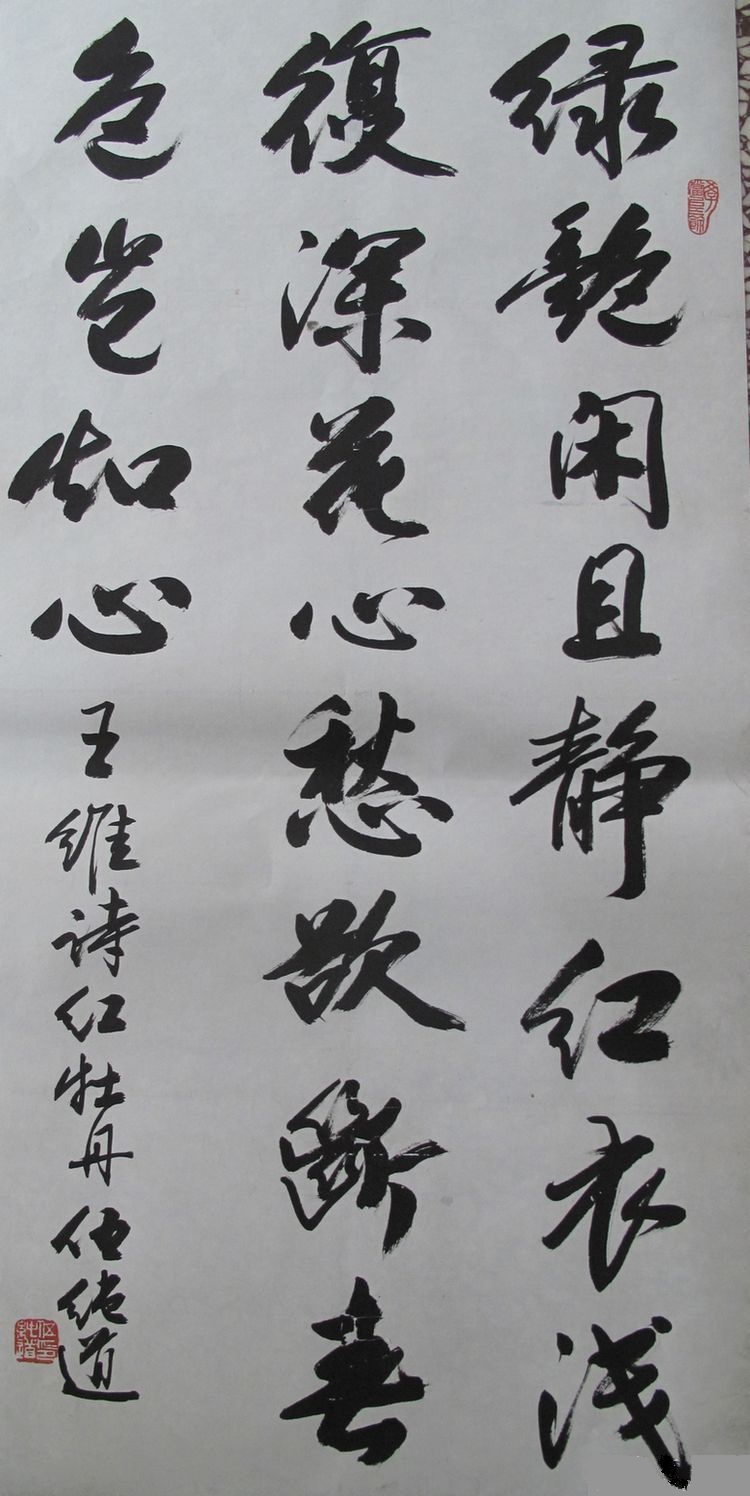 绿艳闲且静红衣浅
復深花心愁欲断春
色岂知心王维诗红牡丹伍纯道